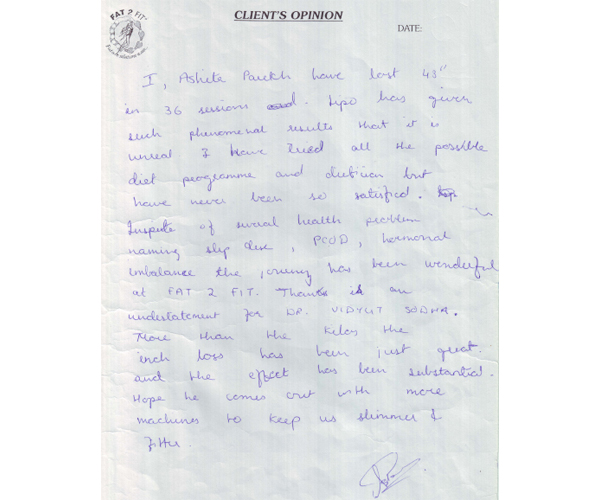 FAT 2 FIT
CLIENT'S OPINION
DATE:
I, Ashita Parekh have lost 48"
in 36 sessions. Lipo has given
such phenomenal results that it is
unreal I have tried all the possible
diet programme and dietician but
have never been so satisfied.
Inspite of several health problem
naming slip disc, PCOD, hormonal
imbalance the journey has been wonderful
at FAT 2 FIT. Thanks is an
understatement for DR. VIDYUT SODHA.
More than the kilos the
inch loss has been just great.
and the effect has been substantial.
Hope he comes out with more
machines to keep us slimmer &
fitter.